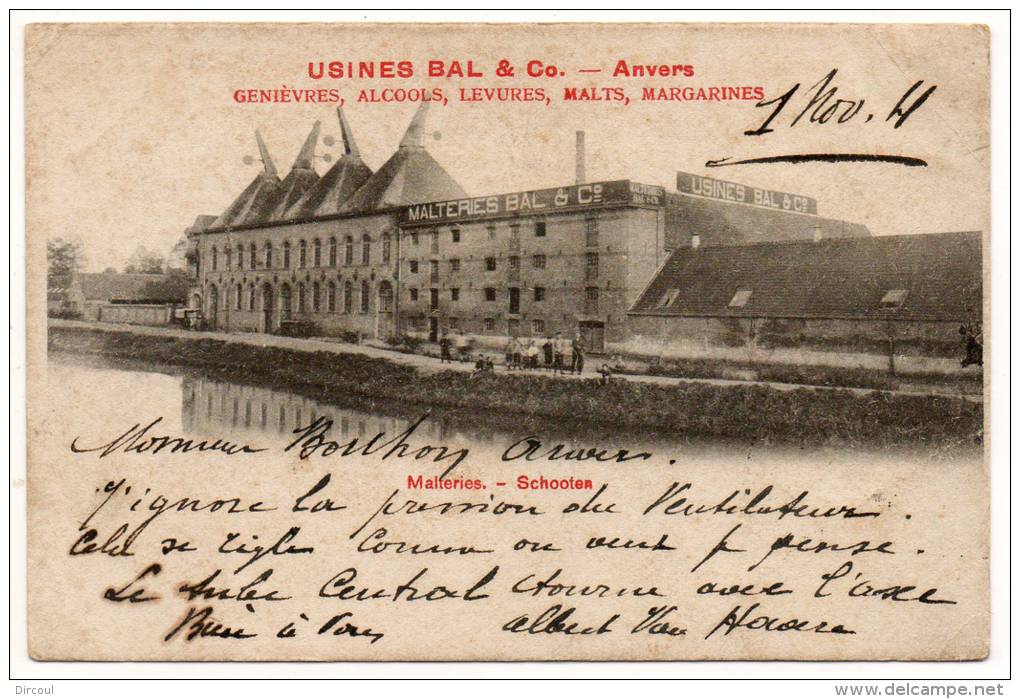 USINES BAL & Co. — Anvers
GENIÈVRES, ALCOOLS, LEVURES, MALTS, MARGARINES
1 Nov. 4
USINES BAL & Cº
MALTERIES BAL & Cº
MALTERIES BAL & Cº
Monsieur Anvers.
Malteries. - Schooten
J'ignore la pression du Ventilateur.
Cela se règle comme on veut je pense.
Le tube Central tourne avec l'axe
Bien à Vous Albert Van Havere
Dircoul
www.delcampe.net